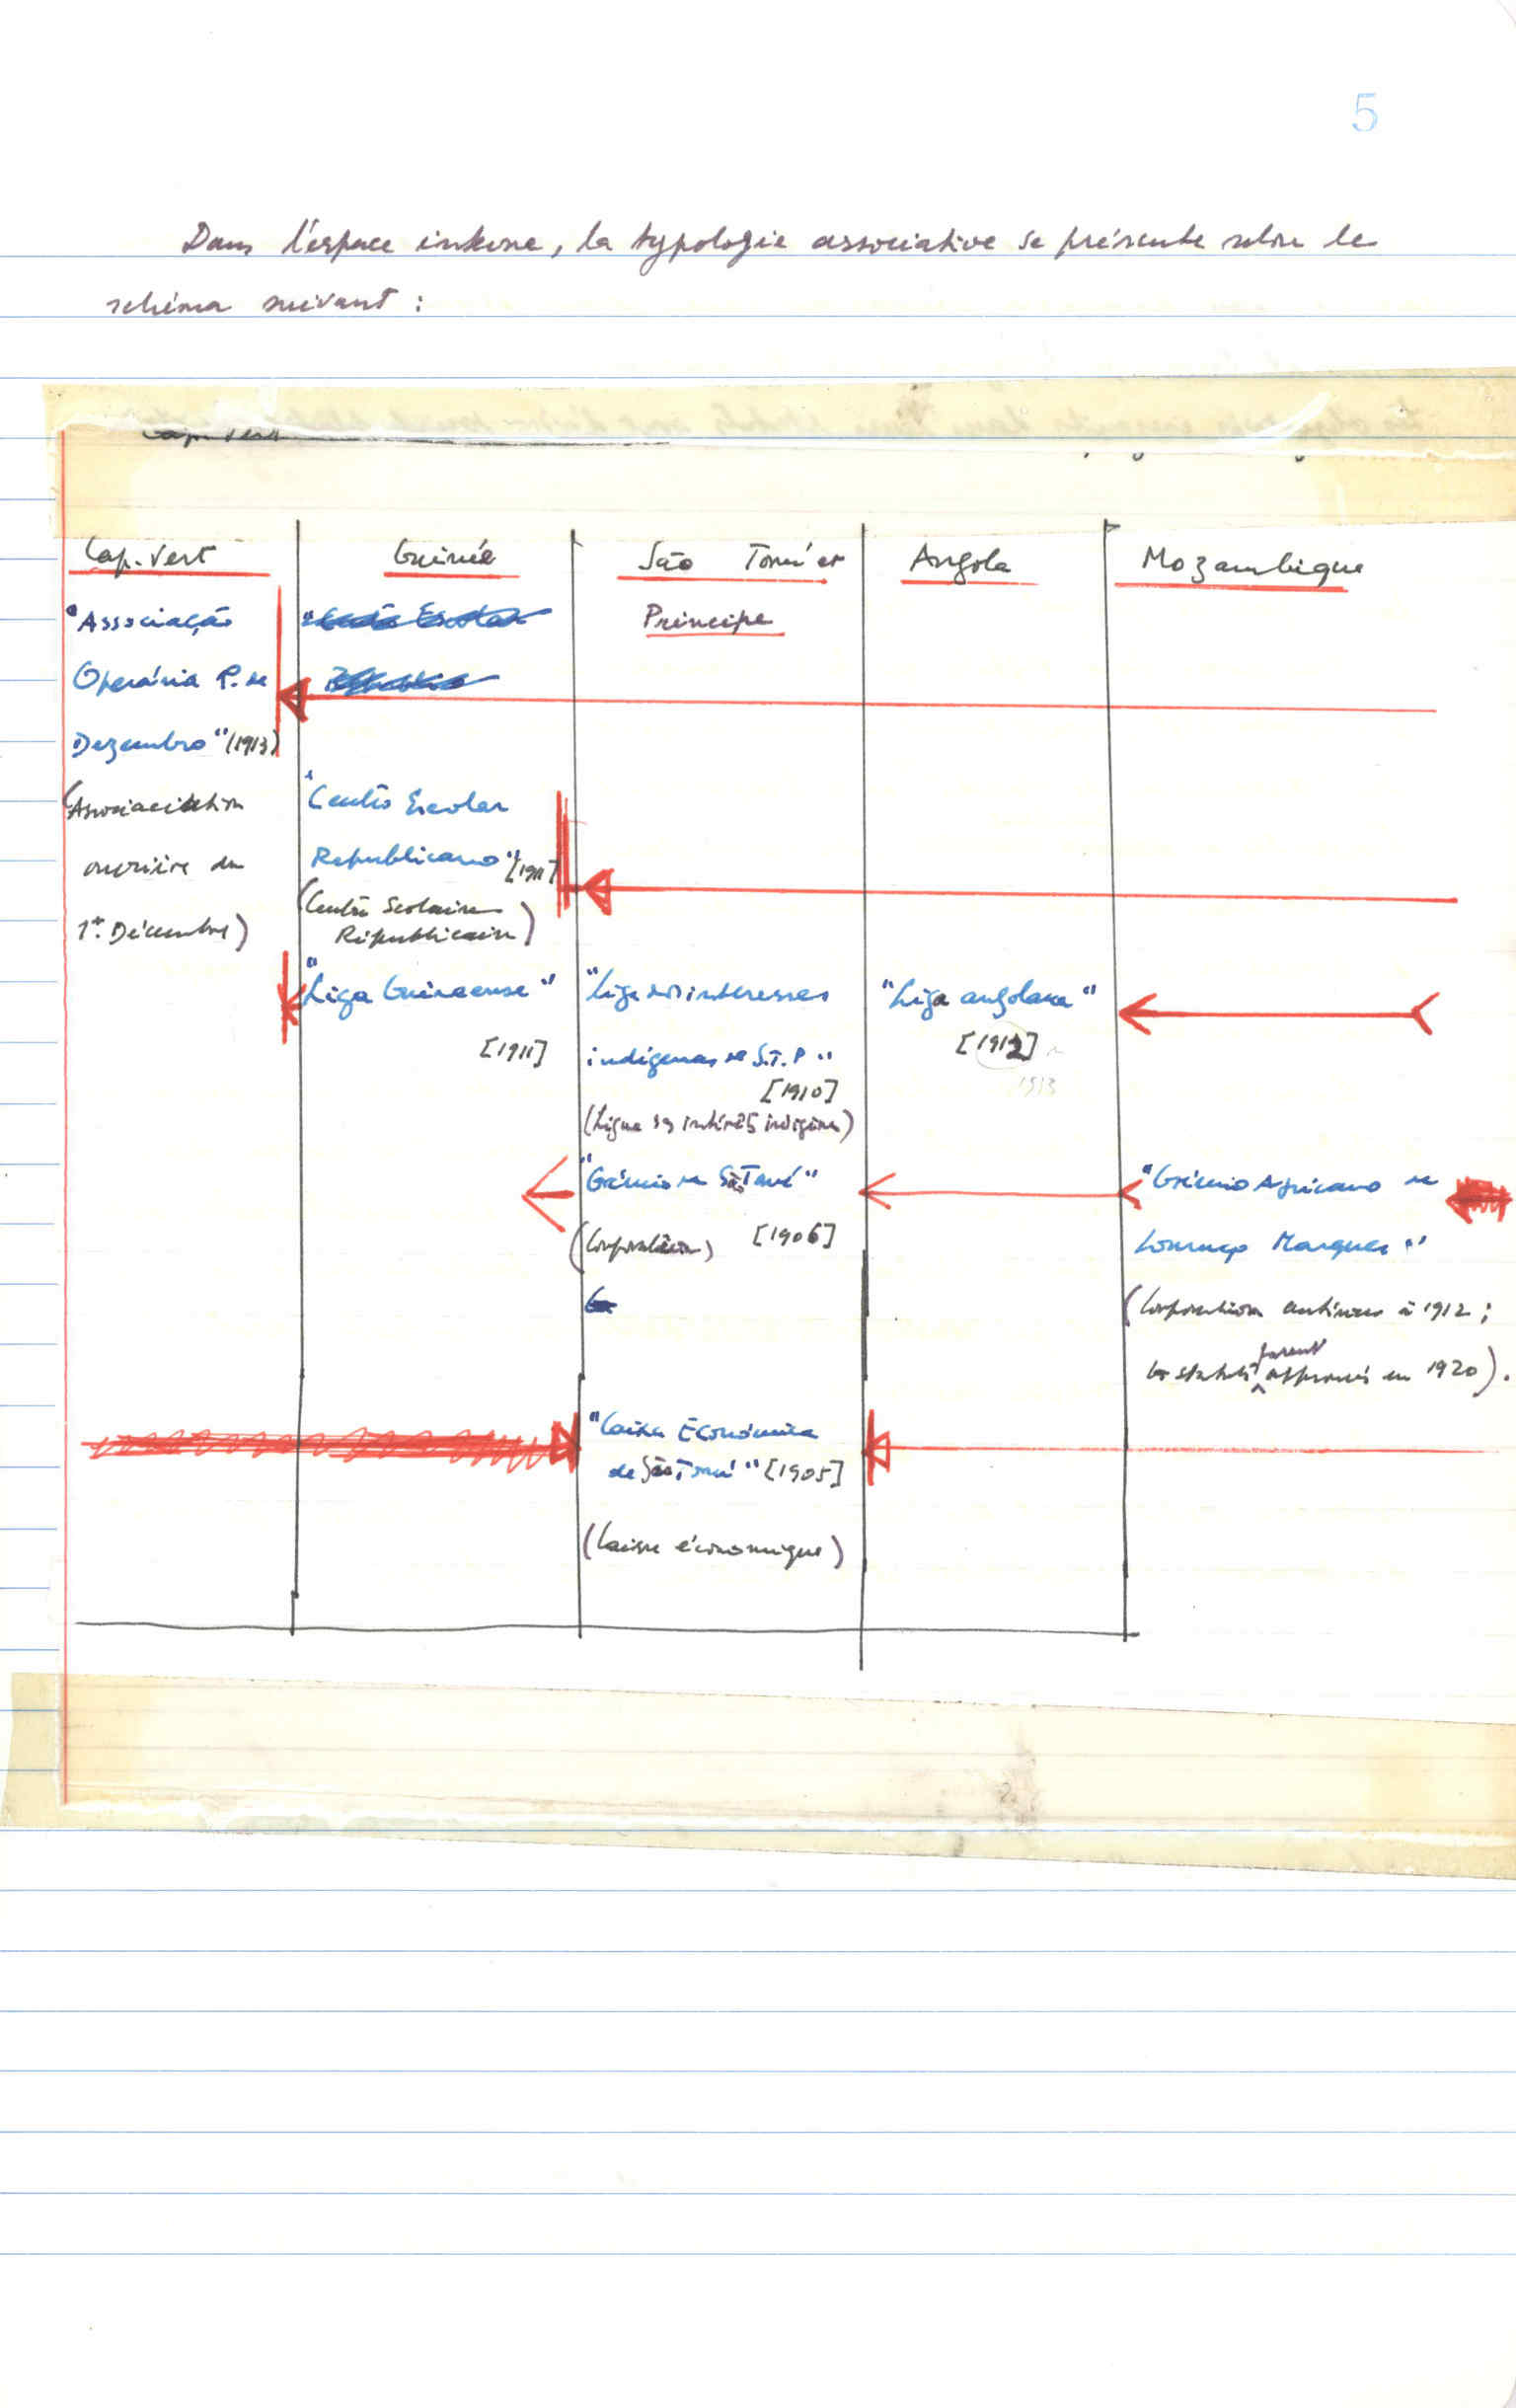 5
Dans l'espace interne, la typologie associative se présente selon le
schéma suivant :
Cap. Vert
Cap. Vert
"Associação
Operária P. de
Dezembro" (1913)
ouvrière du
1er. Décembre)
Guinée
"Centro Escolar
"Centro Escolar
Republicano" [1911]
(Centre Scolaire
Républicain)
"Liga Guineense"
[1911]
São Tomé et
Principe
"Liga dos interesses
indígenas de S.T.P"
[1910]
(Ligue des intérêts indigènes)
"Grémio de S.Tomé"
(Corporation) [1906]
"Caixa Económica
de São Tomé" [1905]
(Caisse économique)
Angola
"Liga angolana"
[1912]
1913
Mozambique
"Grémio Africano de
Lourenço Marques"
(Corporation antérieure à 1912 ;
statuts furent approuvés en 1920).